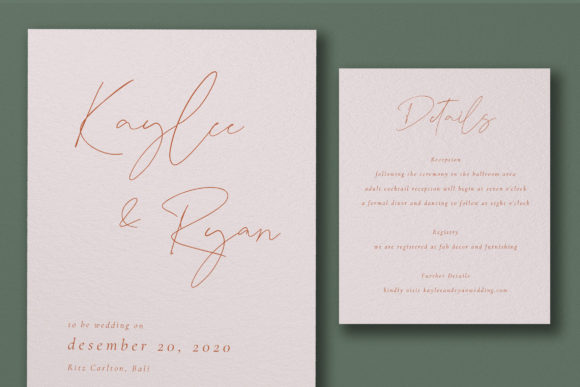 Kaylee
& Ryan
to be wedding on
desember 20, 2020
Ritz Carlton, Bali
Details
Reception
following the ceremony in the ballroom area
adult cocktail reception will begin at seven o'clock
a formal diner and dancing to follow at eight o'clock
Registry
we are registered at fab decor and furnishing
Further Details
kindly visit kayleeandryanwedding.com